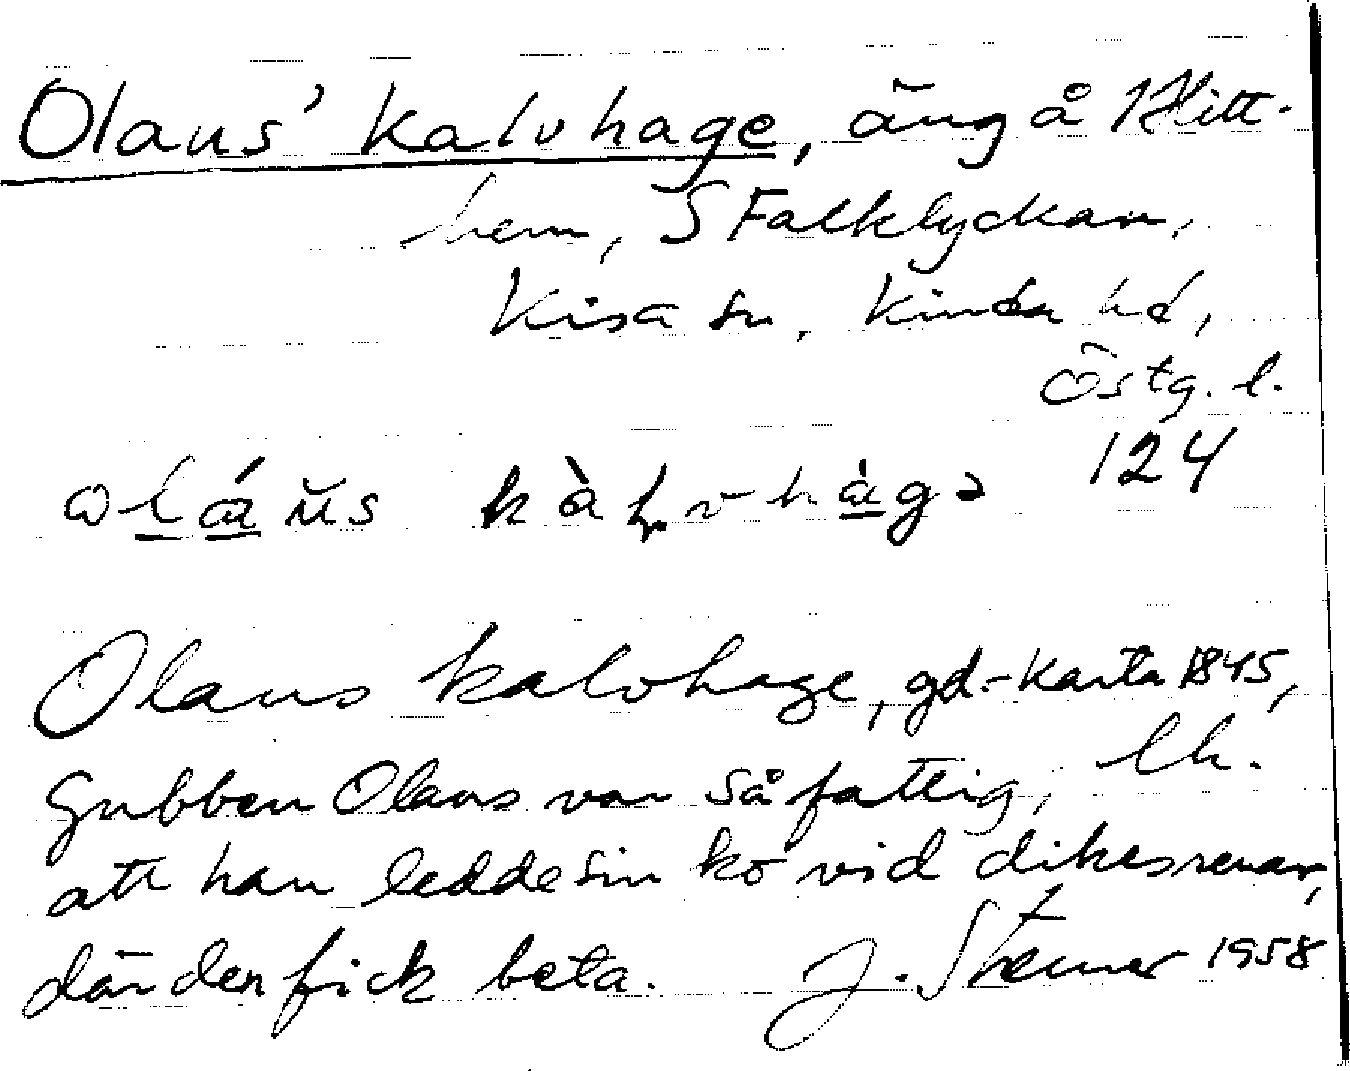 Olaus' kalvhage, äng å Hlitt-
hem, S Falklyckan,
Kisa sn, Kinda hd,
Östg. l.
124
Olaus kalvhage, gd-karta 1845,
lh.
Gubben Olaus var så fattig,
att han ledde sin ko vid dikesrenar,
där den fick beta. J. Sterner 1958